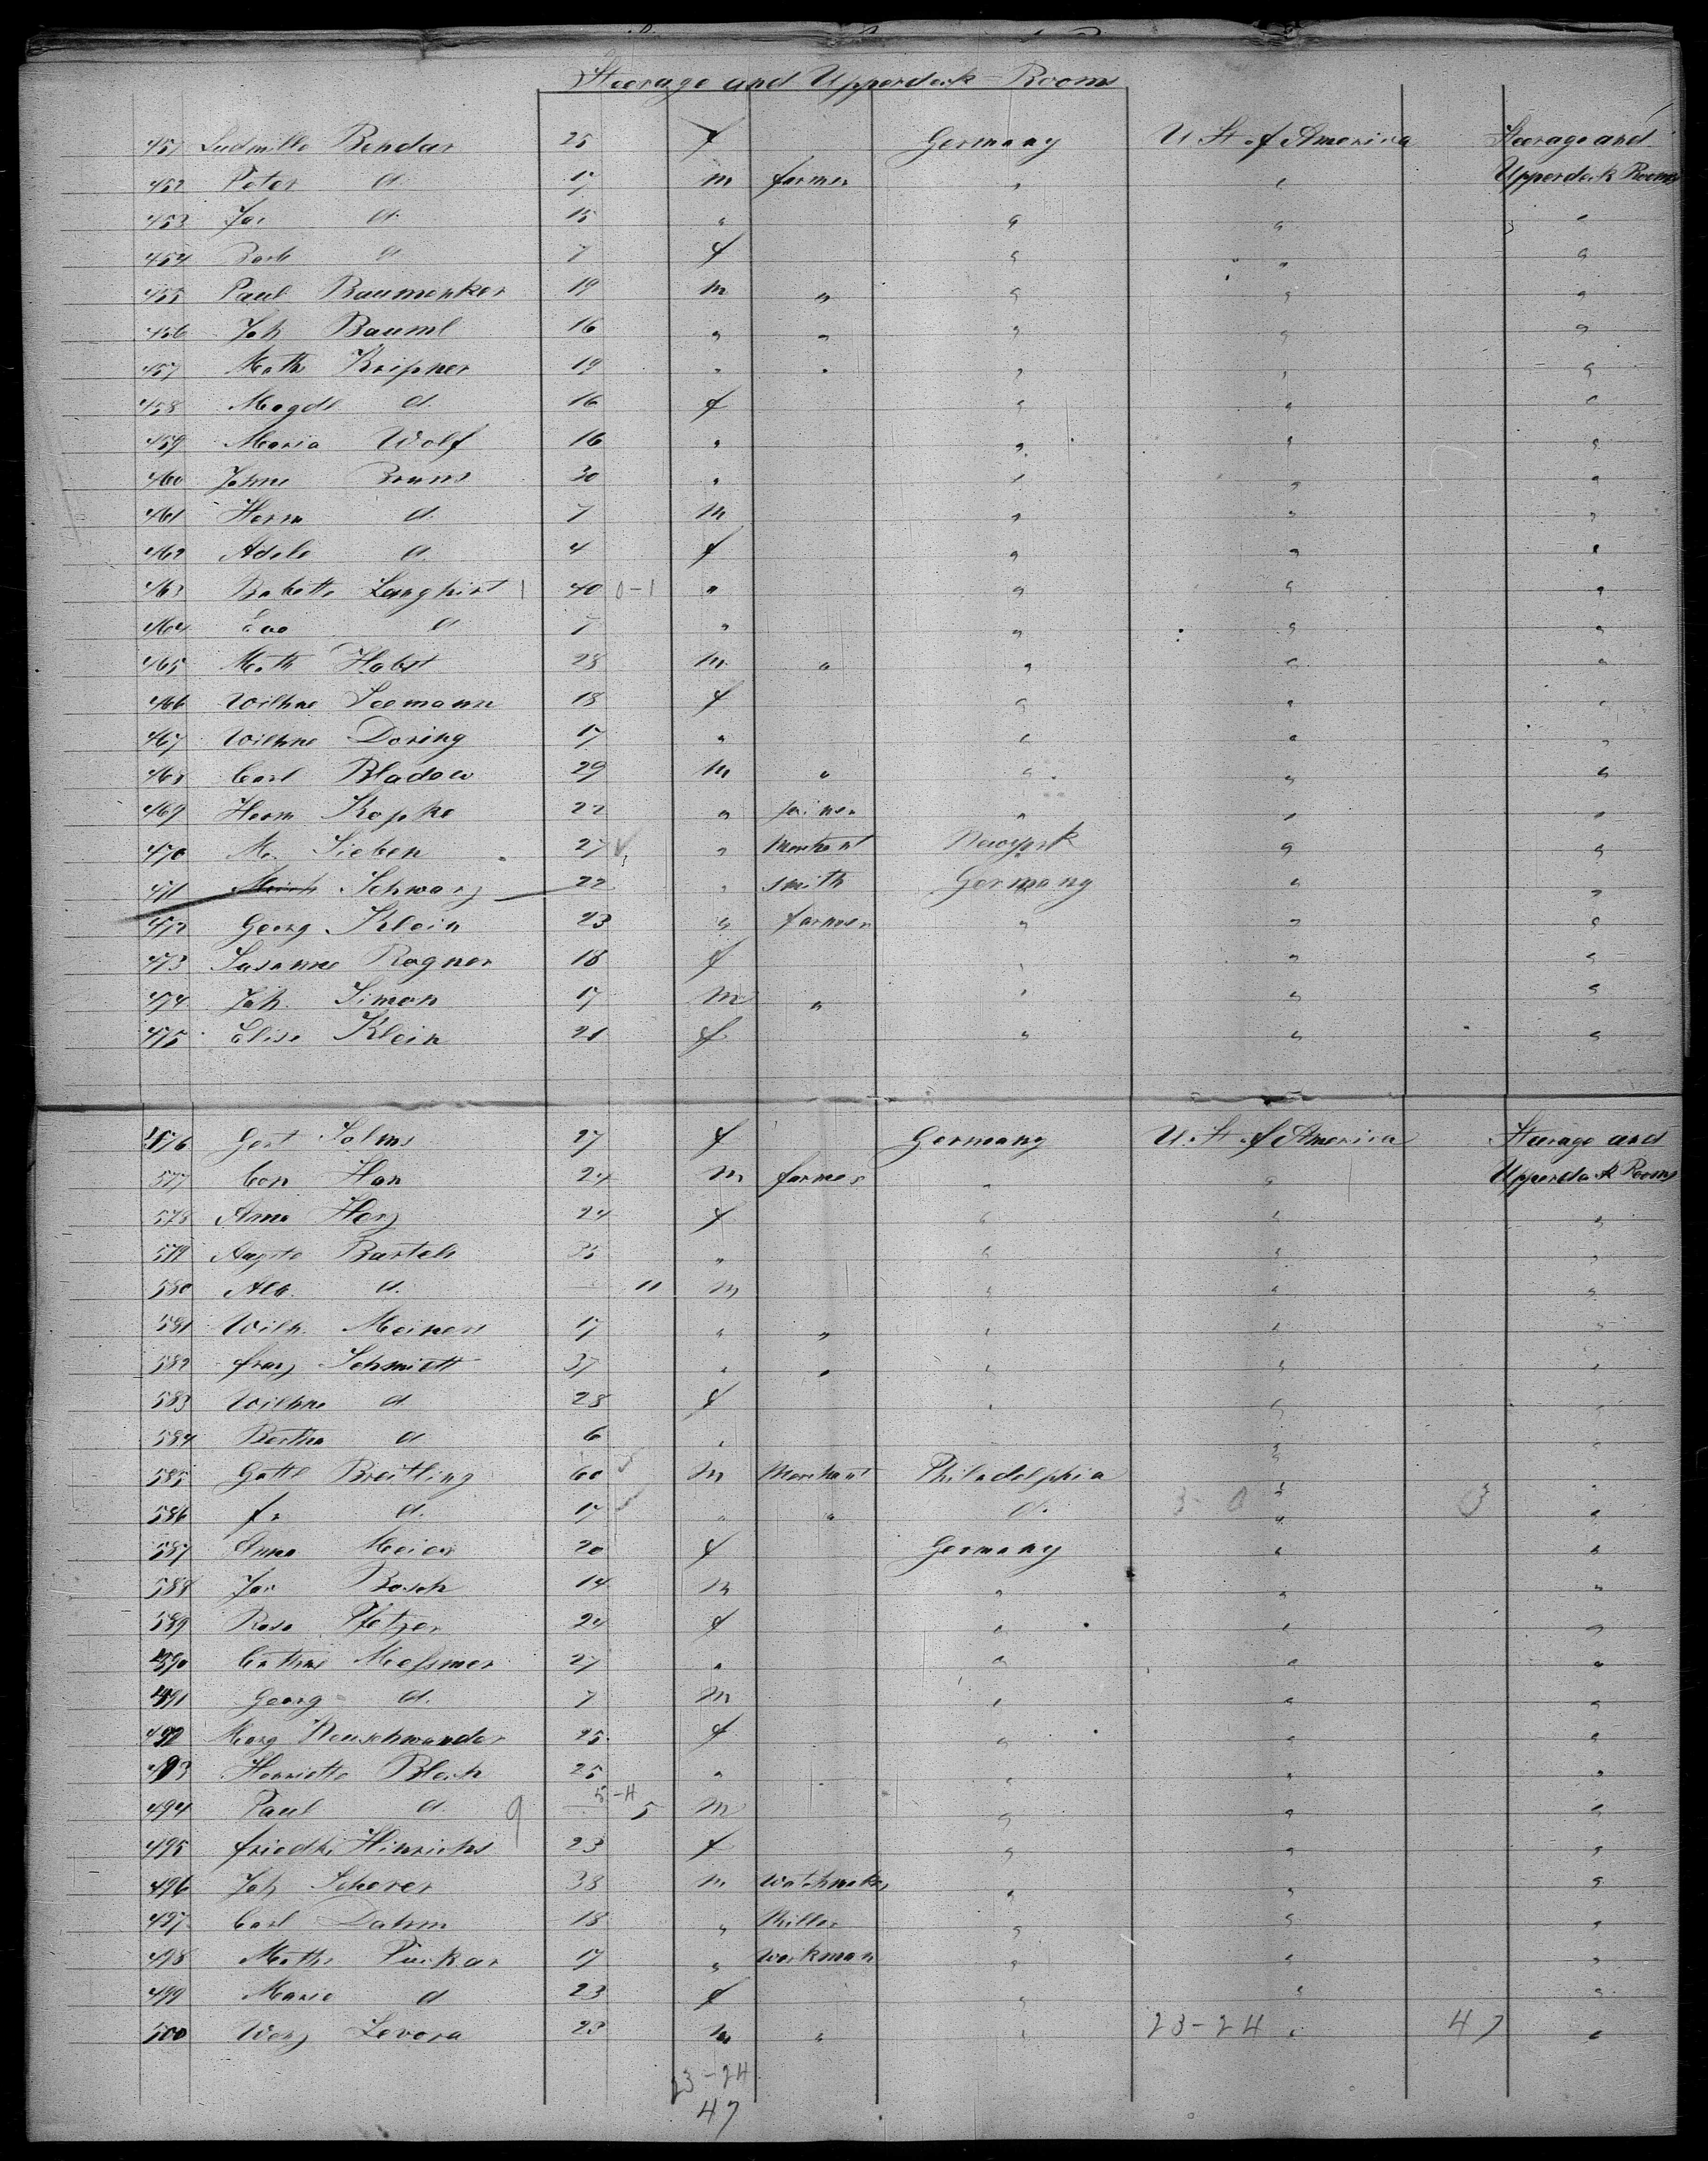 Steerage and Upperdeck Rooms
451 Ludmille Bendar 25 f Germany U. St. of America Steerage and
452 Peter d. 17 m farmer " " Upperdeck Rooms
453 Jos d. 15 " " " "
454 Barb d 7 f " " "
455 Paul Baumenker 19 m " " " "
456 Joh Bauml 16 " " " " "
457 Math Kripner 19 " " " " "
458 Magdl d. 16 f " " "
459 Maria Wolf 16 " " " "
460 Johne Bruns 30 " " " "
461 Herm d. 7 m " " "
462 Adele d. 4 f " " "
463 Babette Langhirt 1 40 0-1 " " " "
464 Eva d 7 " " " "
465 Math Habst 28 m " " " "
466 Wilhne Seemann 18 f " " "
467 Wilhne Doring 17 " " " "
468 Carl Bladow 29 m " " " "
469 Herm Kopke 22 " " " "
470 M. Sieben 27 " Merchant Newyork " "
471 Schwarz 22 " smith Germany " "
472 Georg Klein 23 " farmer " " "
473 Susanne Ragner 18 f " " "
474 Joh. Simon 17 m " " " "
475 Elise Klein 21 f " " "
476 Gert Solms 27 f Germany U. St. of America Steerage and
577 Con Han 24 m farmer " " Upperdeck Rooms
578 Anna Herz 24 f " " "
579 Augste Bartels 35 " " " "
580 Alb. d. 11 m " " "
581 Wilh. Meiners 17 " " " " "
582 franz Schmidt 37 " " " " "
583 Wilhne d 28 f " " "
584 Bertha d 6 " " " "
585 Gottl Breitling 60 m Merchant Philadelphia " "
586 fr d. 17 " " d. 3-0 " 3 "
587 Anna Meier 20 f Germany " "
588 Jos Bosch 14 m " " "
589 Rosa Pfetzer 24 f " " "
490 Cathne Meßmer 27 " " " "
491 Georg d. 7 m " " "
492 Marg Neuschwander 25 f " " "
493 Henriette Bloch 25 " " " "
494 Paul d 9 5-4 5 m " " "
495 friedke Hinrichs 23 f " " "
496 Joh Scherer 38 m Watchmaker " " "
497 Carl Dahm 18 " Miller " " "
498 Math. Puckar 17 " Workman " " "
499 Marie d 23 f " " "
500 Wenz Levora 23 m " " 23-24 " 47 "
23-24
47